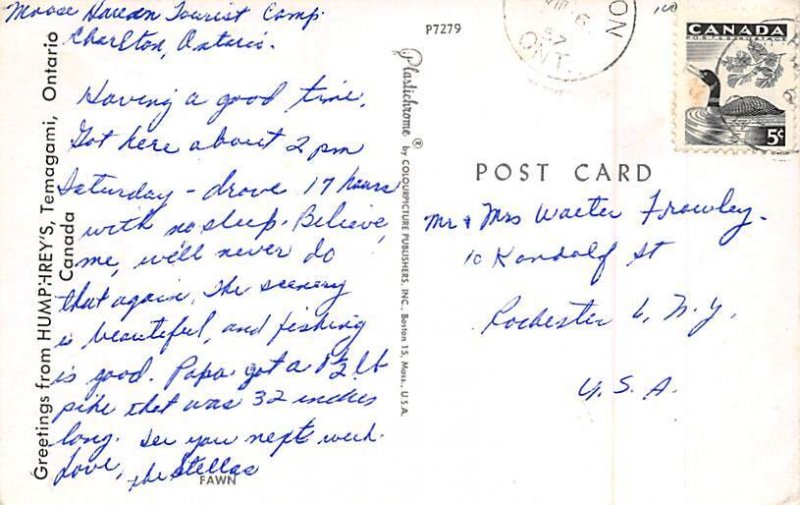 Moose Haven Tourist Camp
Charlton, Ontario.
Having a good time.
Got here about 2 pm
Saturday - drove 17 hours
with no sleep. Believe
me, we'll never do
that again. The scenery
is beautiful, and fishing
is good. Papa got a 8½ lb
pike that was 32 inches
long. See you next week.
Love, the Stellas
FAWN
Greetings from HUMPHREY'S, Temagami, Ontario
Canada
P7279
Plastichrome ® by COLOURPICTURE PUBLISHERS, INC., Boston 15, Mass., U.S.A.
ON
57
ONT.
CANADA
POSTES POSTAGE
5¢
POST CARD
Mr & Mrs Walter Frawley.
10 Kondolf St
Rochester 6, N.Y.
U.S.A.